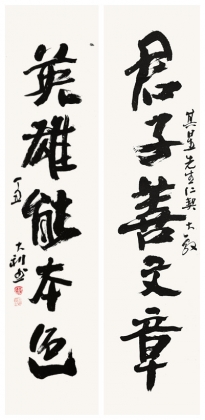 君子善文章
其昱先生仁契 大教
英雄能本色
丁丑
大利书